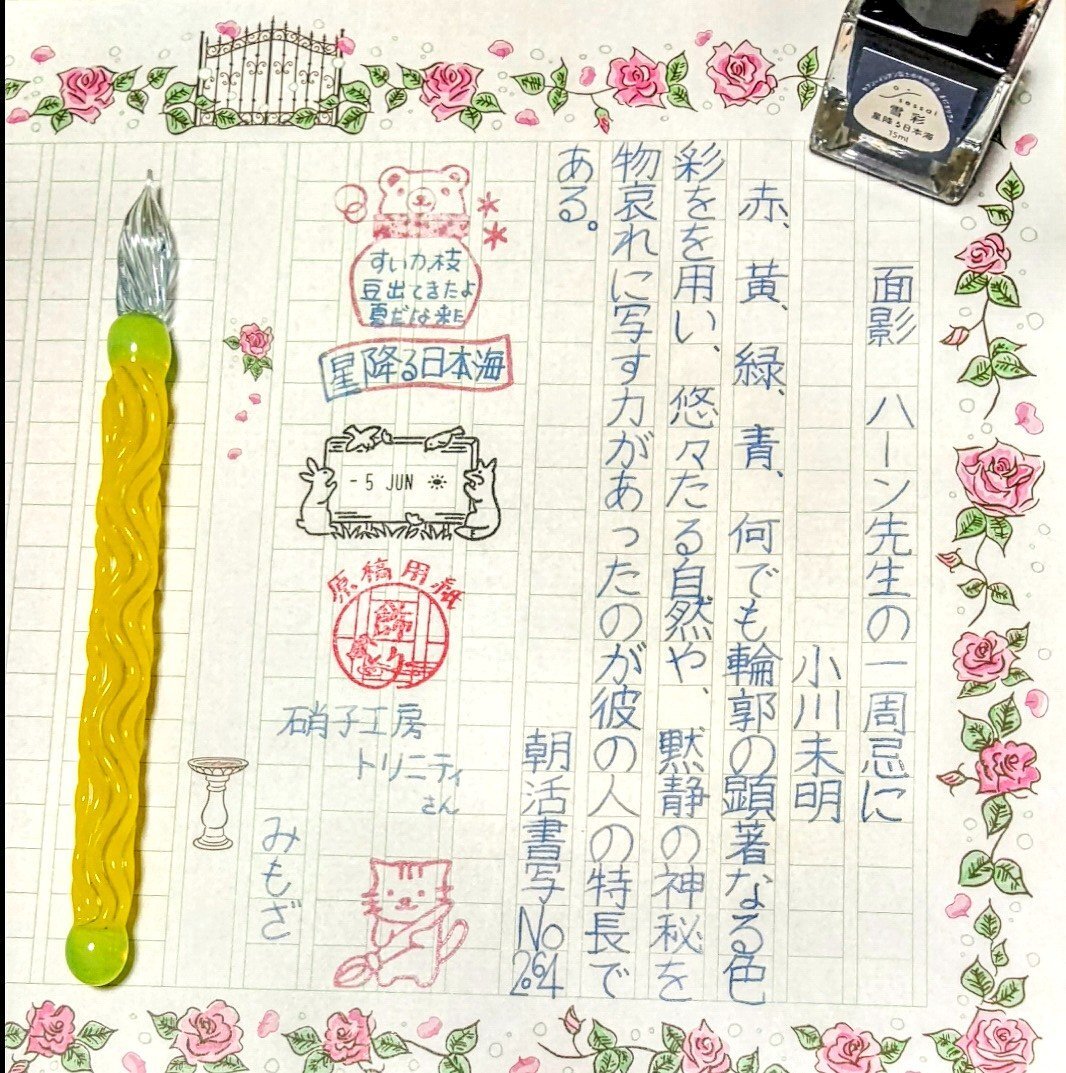 面影 ハーン先生の一周忌に
小川未明
赤、黄、緑、青、何でも輪郭の顕著なる色
彩をを用い、悠々たる自然や、黙静の神秘を
物哀れに写す力があったのが彼の人の特長で
ある。
朝活書写No
264
すいか、枝
豆出てきたよ
夏だな来た
星降る日本海
- 5 JUN
原稿用紙
飾り
硝子工房
トリニティ
さん
みもざ
sessai
雪彩
星降る日本海
15ml